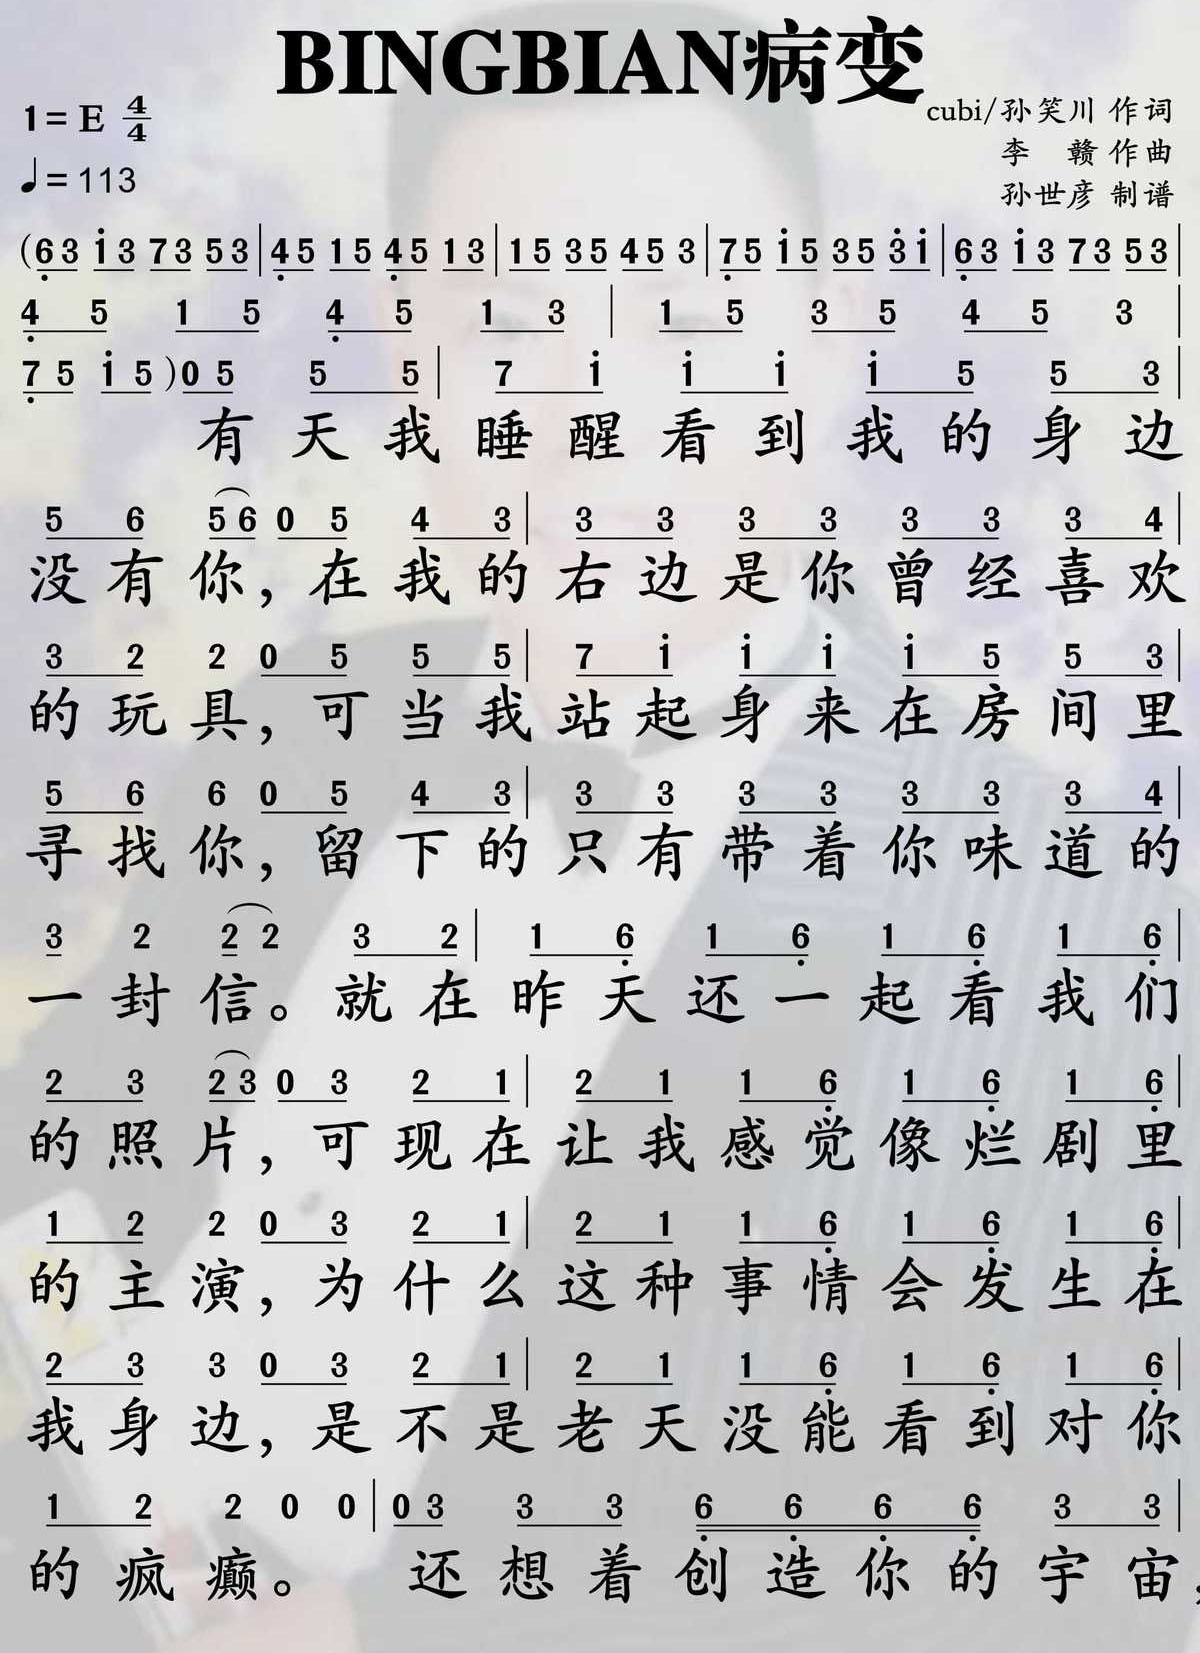 BINGBIAN病变
1=E 4/4
♩=113
cubi/孙笑川 作词
李 赣 作曲
孙世彦 制谱
(6̣3 1̇3 73 53|4̣5 15 4̣5 13|15 35 45 3|7̣5 1̇5 35 3̇1̇|6̣3 1̇3 73 53|
4̣ 5 1 5 4̣ 5 1 3 | 1 5 3 5 4 5 3 |
7̣ 5 1̇ 5 )0 5 5 5 | 7 1̇ 1̇ 1̇ 1̇ 5 5 3 |
有天我睡醒看到我的身边
5 6 5 6 0 5 4 3 | 3 3 3 3 3 3 3 4 |
没有你,在我的右边是你曾经喜欢
3 2 2 0 5 5 5 | 7 1̇ 1̇ 1̇ 1̇ 5 5 3 |
的玩具,可当我站起身来在房间里
5 6 6 0 5 4 3 | 3 3 3 3 3 3 3 4 |
寻找你,留下的只有带着你味道的
3 2 2 2 3 2 | 1 6̣ 1 6̣ 1 6̣ 1 6̣ |
一封信。就在昨天还一起看我们
2 3 2 3 0 3 2 1 | 2 1 1 6̣ 1 6̣ 1 6̣ |
的照片,可现在让我感觉像烂剧里
1 2 2 0 3 2 1 | 2 1 1 6̣ 1 6̣ 1 6̣ |
的主演,为什么这种事情会发生在
2 3 3 0 3 2 1 | 2 1 1 6̣ 1 6̣ 1 6̣ |
我身边,是不是老天没能看到对你
1 2 2 0 0 | 0 3 3 3 6̣ 6̣ 6̣ 6̣ 3 3 |
的疯癫。还想着创造你的宇宙,